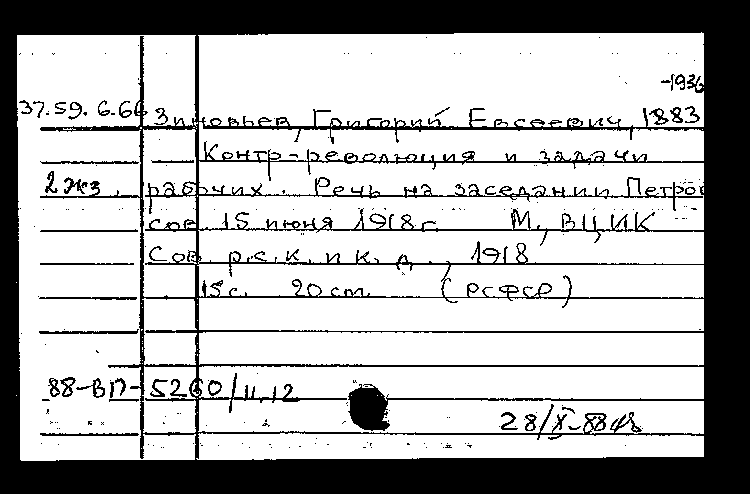 -1936
37.59.6.66 Зиновьев, Григорий Евсеевич, 1883
Контр-революция и задачи
2 экз. рабочих. Речь на заседании Петров
сов. 15 июня 1918 г. М., ВЦИК
Сов. р.с.к. и к. д., 1918
15 с. 20 cm. (РСФСР)
88-ВП-5260/11.12
28/X-88